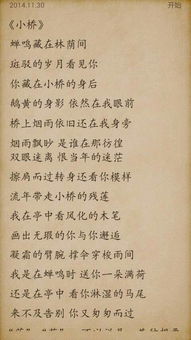 2014.11.30 开始
《小桥》
蝉鸣藏在林荫间
斑驳的岁月看见你
你藏在小桥的身后
鹅黄的身影 依然在我眼前
桥上烟雨依旧还在我身旁
烟雨飘吵 是谁在那彷徨
双眼迷离 恨当年的迷茫
擦肩而过转身还看你模样
流年带走小桥的残莲
我在亭中看风化的木笔
画出无瑕的你与你邂逅
凝霜的臂腕 撑伞穿梭雨间
我是在蝉鸣时 送你一朵满荷
还是在亭中 看你淋湿的马尾
来不及告别 你又匆匆而过